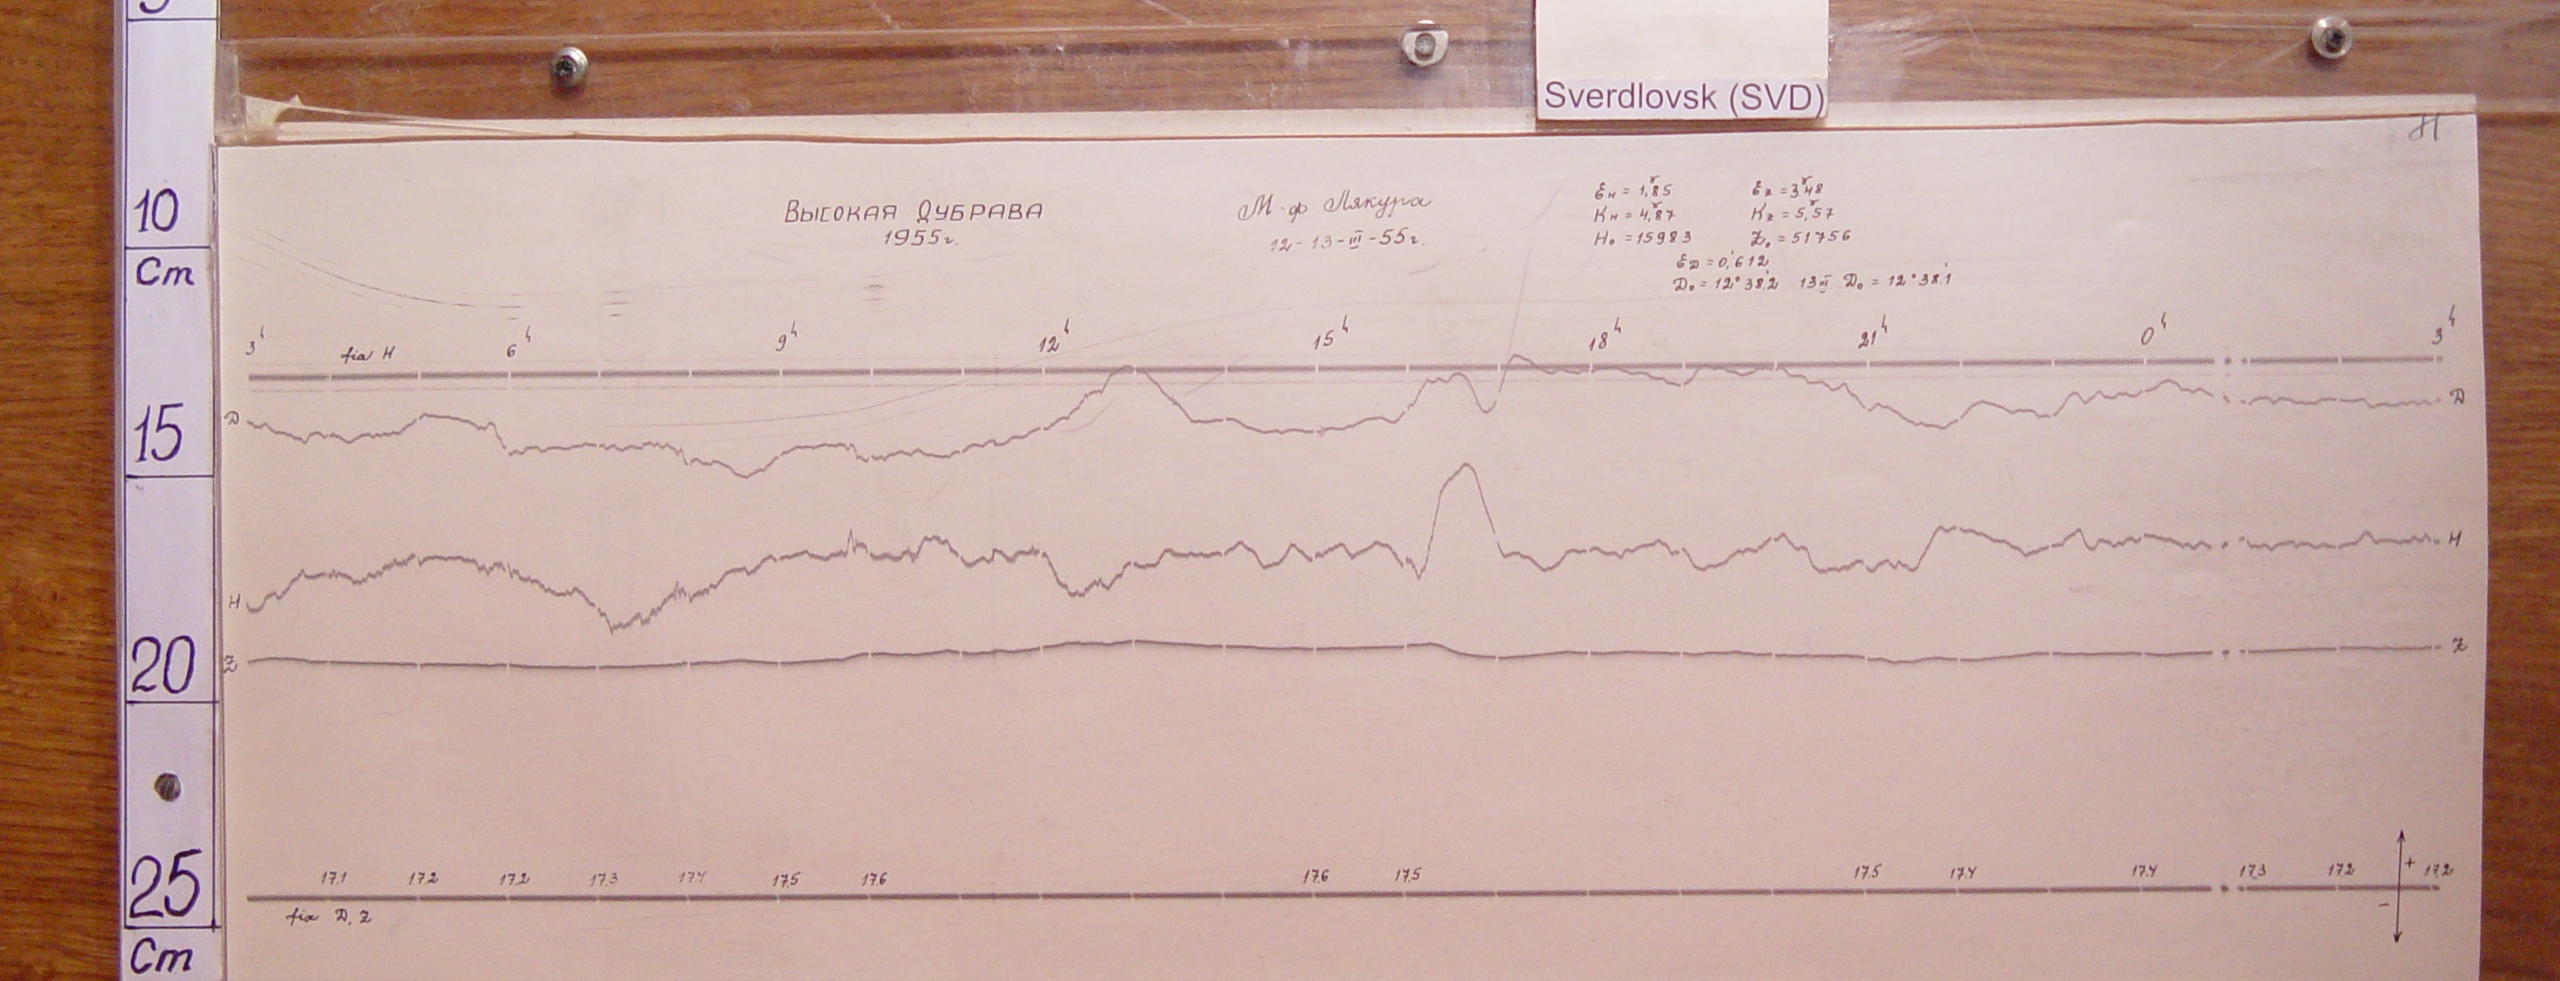 Sverdlovsk (SVD)
H
10
Cm
15
20
25
Cm
ВЫСОКАЯ ДУБРАВА
1955г.
М-ф Лякура
12-13-III-55г.
Ɛн = 1,85 Ɛz = 3,48
Kн = 4,87 Kz = 5,57
H₀ = 15983 Z₀ = 51756
ƐD = 0,612
D₀ = 12°38,2 13 III D₀ = 12°38,1
3h fix H 6h 9h 12h 15h 18h 21h 0h 3h
D D
H H
Z Z
17.1 17.2 17.2 17.3 17.4 17.5 17.6 17.6 17.5 17.5 17.4 17.4 17.3 17.2 17.2
+
-
fix D, Z